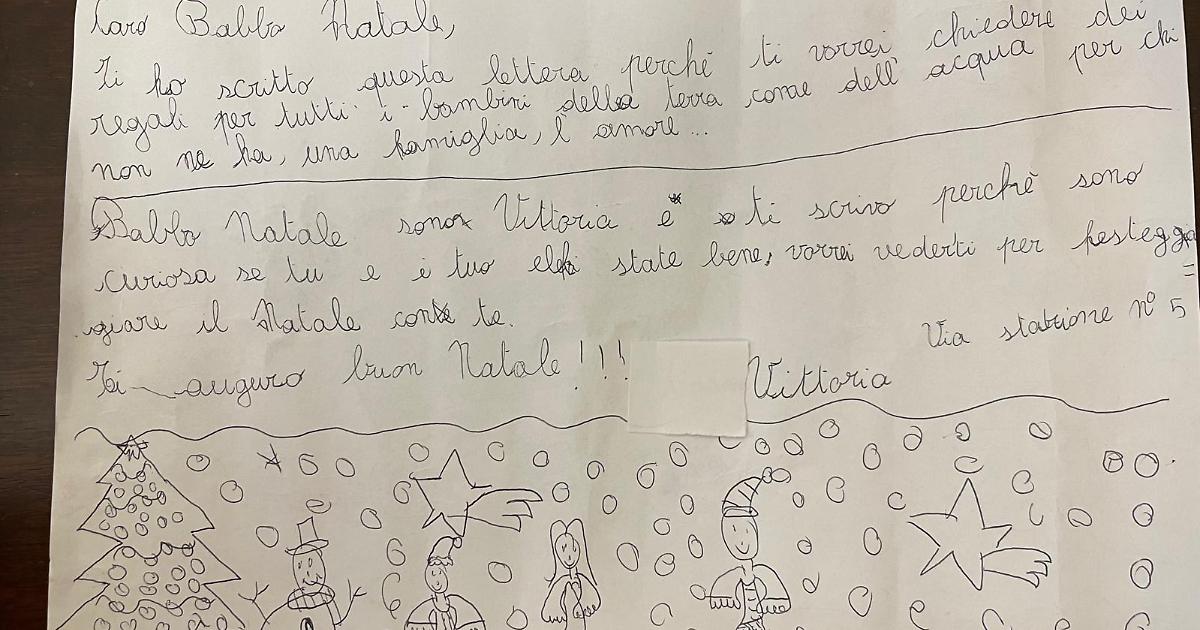 Caro Babbo Natale,
Ti ho scritto questa lettera perché ti vorrei chiedere dei
regali per tutti i bambini della terra come dell'acqua per chi
non ne ha, una famiglia, l'amore...
Babbo Natale sono Vittoria e ti scrivo perchè sono
curiosa se tu e i tuo elfi state bene, vorrei vederti per festegg
=
giare il Natale con te.
Via stazione n° 5
Ti auguro buon Natale!!! Vittoria